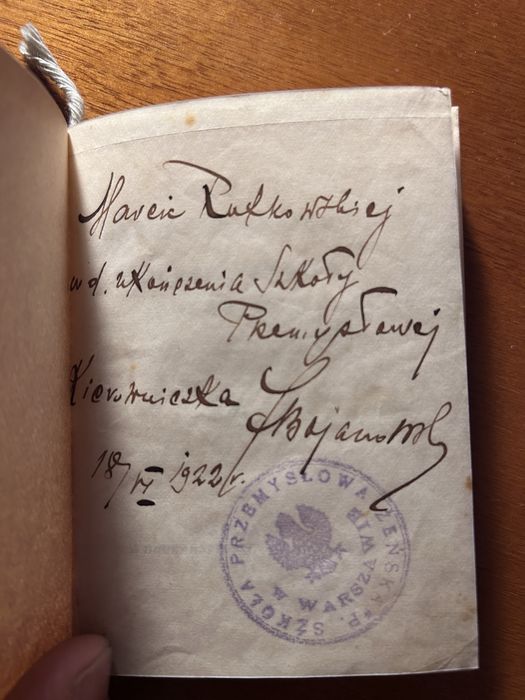 Marcie Rutkowskiej
w d. ukończenia Szkoły
Przemysłowej
Kierowniczka
18/VI 1922 r.
SZKOŁA PRZEMYSŁOWA ŻEŃSKA
W WARSZAWIE